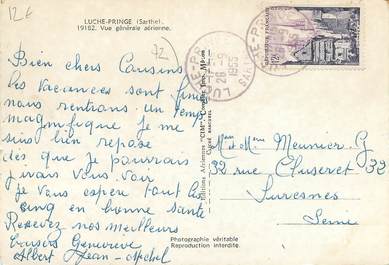 12€
LUCHE-PRINGE (Sarthe)
19162. Vue générale aérienne.
72
LUCHÉ-PRINGÉ
26-9
1955
SARTHE
Bien chers Cousins
les vacances sont finies
nous rentrons. un temps
magnifique je me
suis bien reposé
dès que je pourrais
j'irais vous voir
je vous espère tout les
cinq en bonne santé
Recevez nos meilleurs
baisers Geneviève
Albert Jean-Michel
Editions Aériennes "CIM" Combier Imp. Mâcon
Mme et Mr Meunier G
32 rue Cluseret 32
Suresnes
Seine
Photographie véritable
Reproduction interdite.